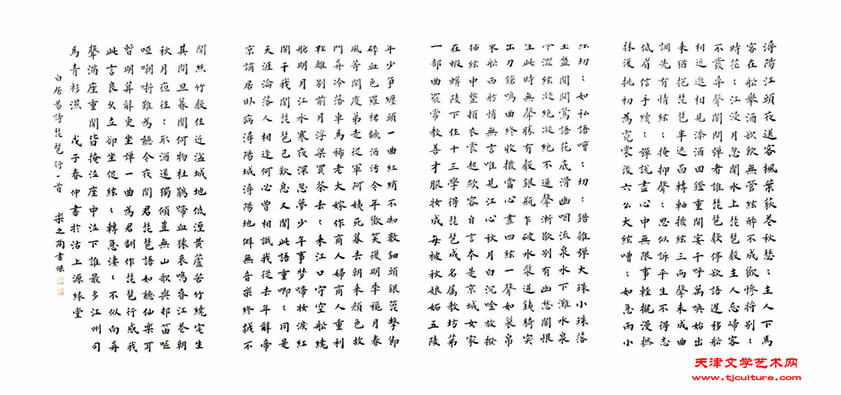 潯陽江頭夜送客楓葉荻花秋瑟〻主人下馬
客在船舉酒欲飲無管絃醉不成歡慘將別〻
時茫〻江浸月忽聞水上琵琶聲主人忘歸客
不發尋聲闇問彈者誰琵琶聲停欲語遲移船
相近邀相見添酒回燈重開宴千呼萬喚始出
來猶抱琵琶半遮面轉軸撥絃三兩聲未成曲
調先有情絃〻掩抑聲〻思似訴平生不得志
低眉信手續〻彈說盡心中無限事輕攏慢撚
抹復挑初為霓裳後六么大絃嘈〻如急雨小
絃切〻如私語嘈〻切〻錯雜彈大珠小珠落
玉盤間關鶯語花底滑幽咽流泉水下灘水泉
冷澀絃凝絕凝絕不通聲漸歇別有幽愁闇恨
生此時無聲勝有聲銀瓶乍破水漿迸鐵騎突
出刀鎗鳴曲終收撥當心畫四絃一聲如裂帛
東船西舫悄無言唯見江心秋月白沉吟放撥
插絃中整頓衣裳起斂容自言本是京城女家
在蝦蟆陵下住十三學得琵琶成名屬教坊第
一部曲罷常教善才服妝成每被秋娘妬五陵
年少爭纏頭一曲紅綃不知數鈿頭銀篦擊節
碎血色羅裙翻酒污今年歡笑復明年秋月春
風等閒度弟走從軍阿姨死暮去朝來顏色故
門前冷落車馬稀老大嫁作商人婦商人重利
輕離別前月浮梁買茶去〻來江口守空船繞
船明月江水寒夜深忽夢少年事夢啼妝淚紅
闌干我聞琵琶已歎息又聞此語重唧〻同是
天涯淪落人相逢何必曾相識我從去年辭帝
京謫居臥病潯陽城潯陽地僻無音樂終歲不
聞絲竹聲住近湓城地低濕黃蘆苦竹繞宅生
其間旦暮聞何物杜鵑啼血猿哀鳴春江花朝
秋月夜往〻取酒還獨傾豈無山歌與村笛嘔
啞嘲哳難為聽今夜聞君琵琶語如聽仙樂耳
暫明莫辭更坐彈一曲為君翻作琵琶行感我
此言良久立卻坐促絃〻轉急淒〻不似向前
聲滿座重聞皆掩泣座中泣下誰最多江州司
馬青衫濕 戊子春仲書於沽上源緣堂
白居易詩琵琶行一首
天津文学艺术网
www.tjculture.com